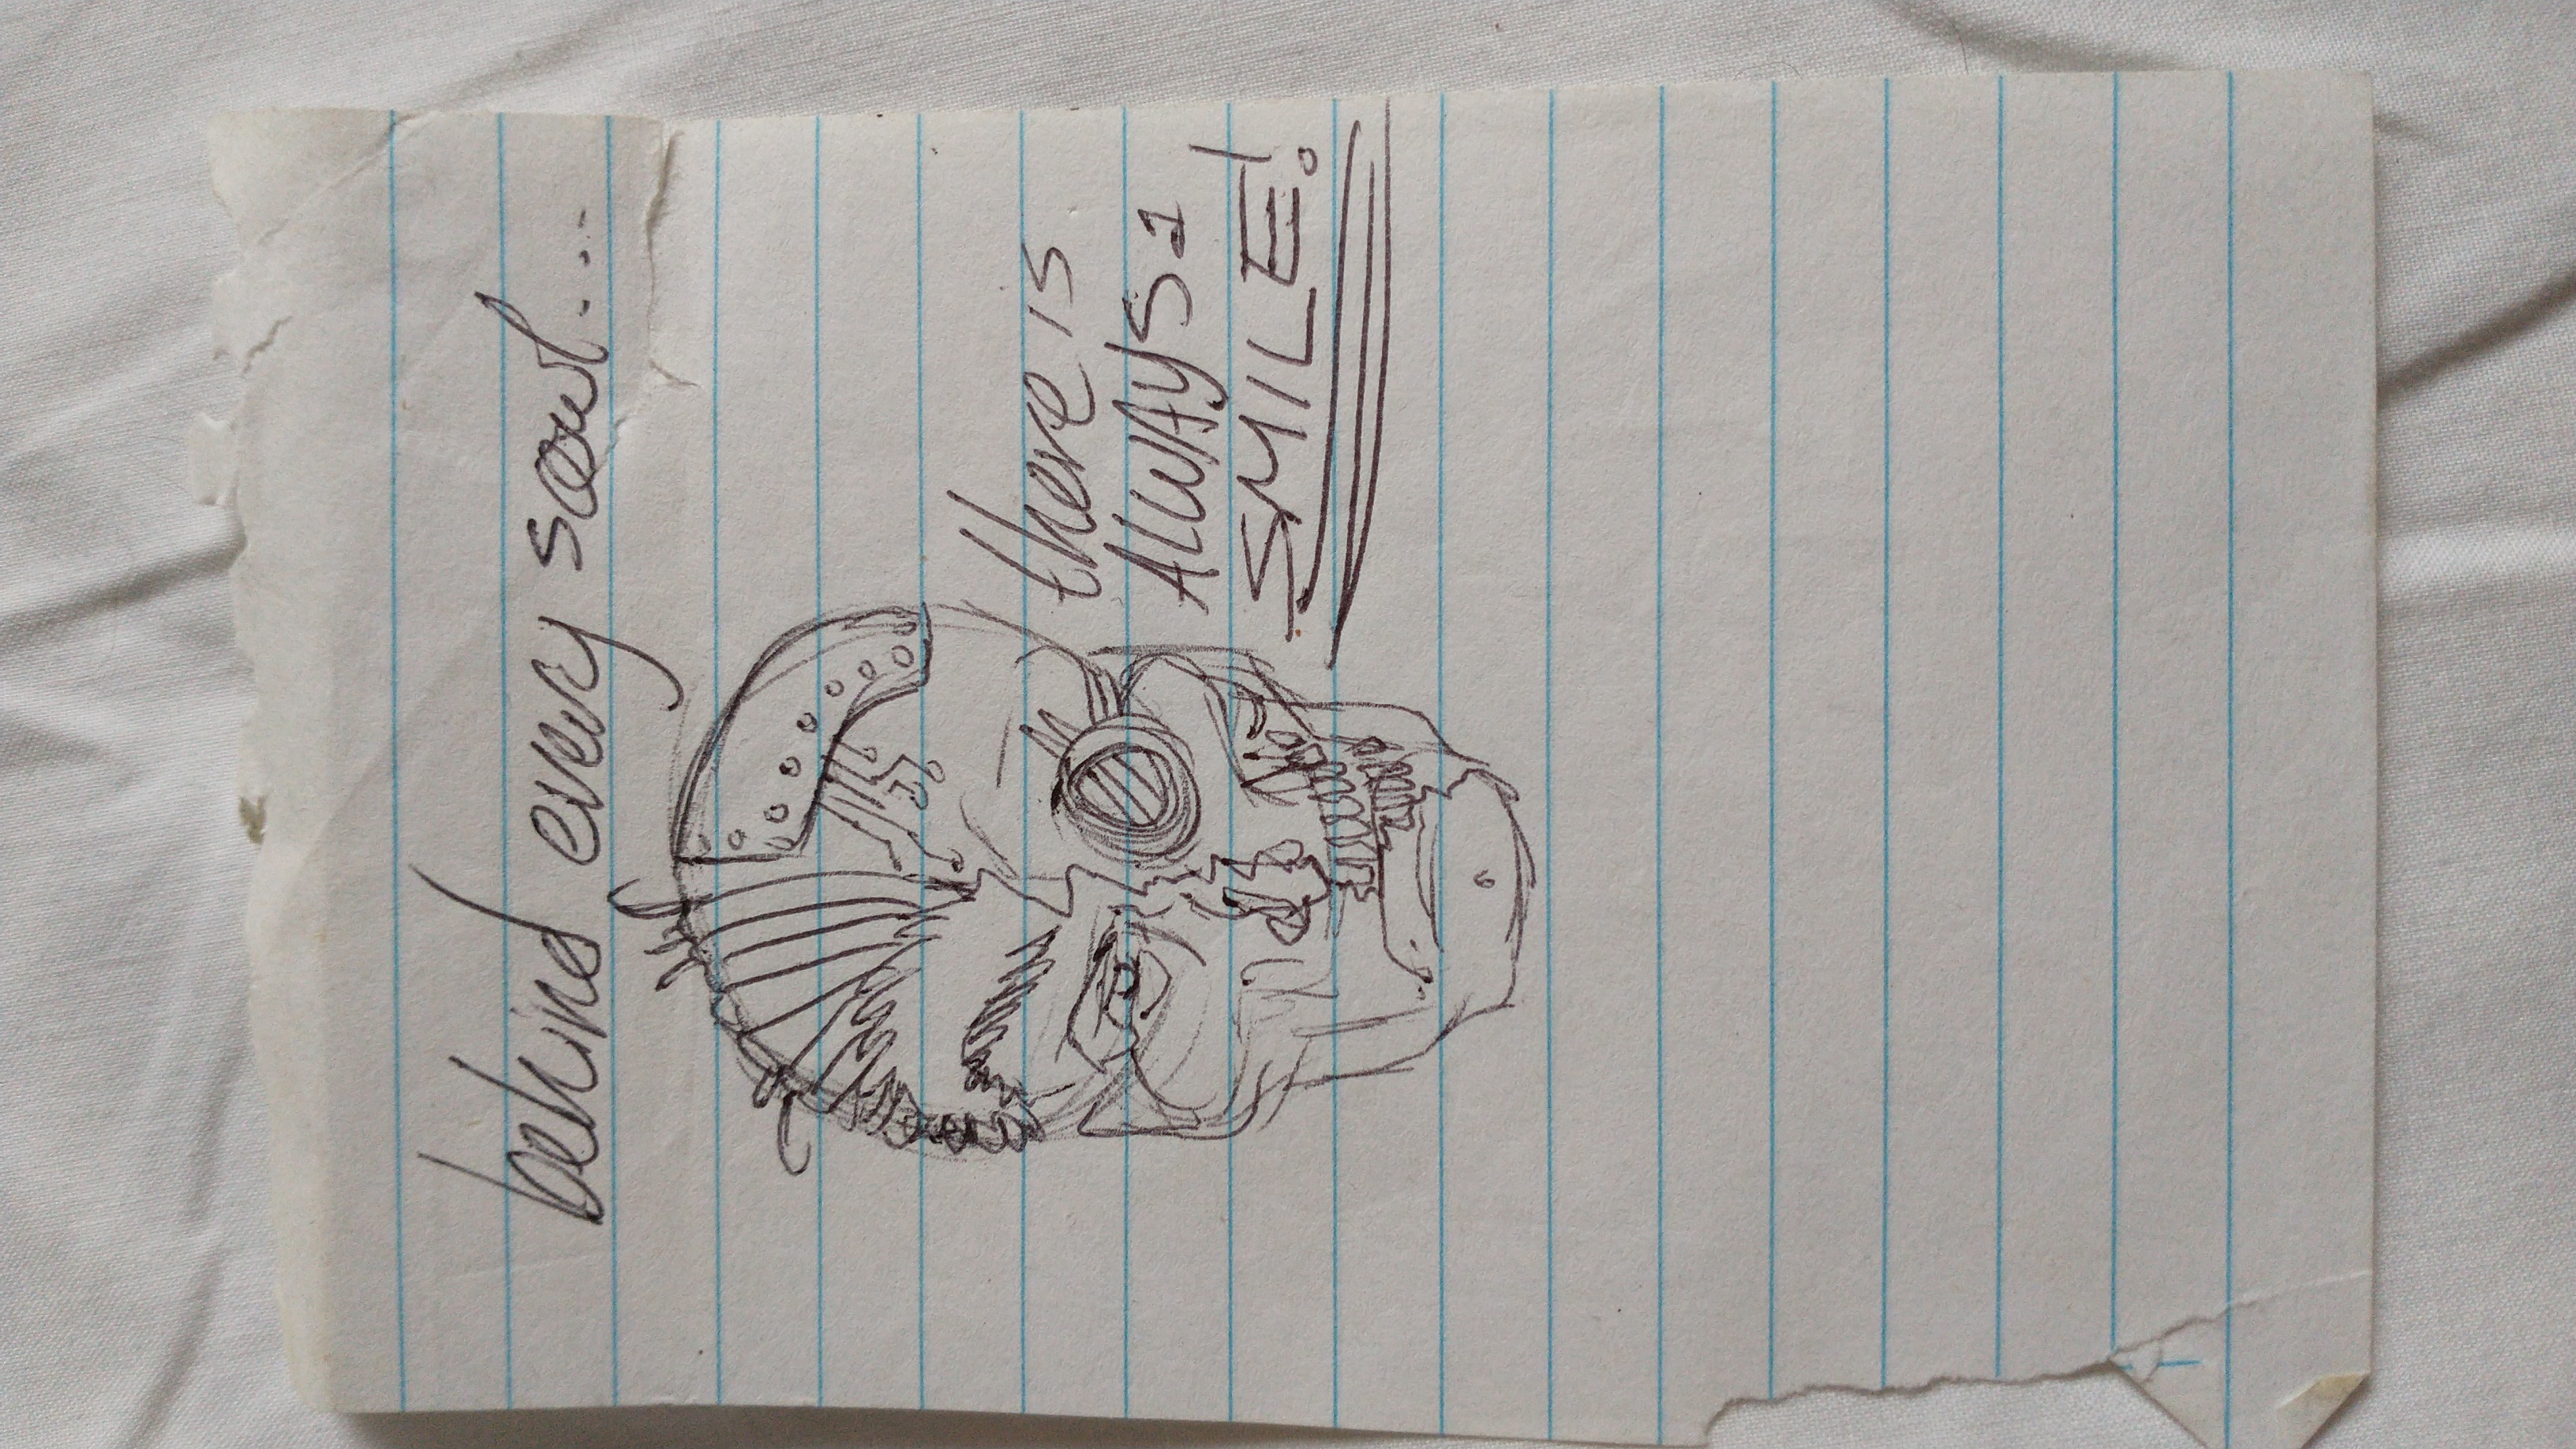 behind every scowl...
there is
ALWAYS a
SMILE!